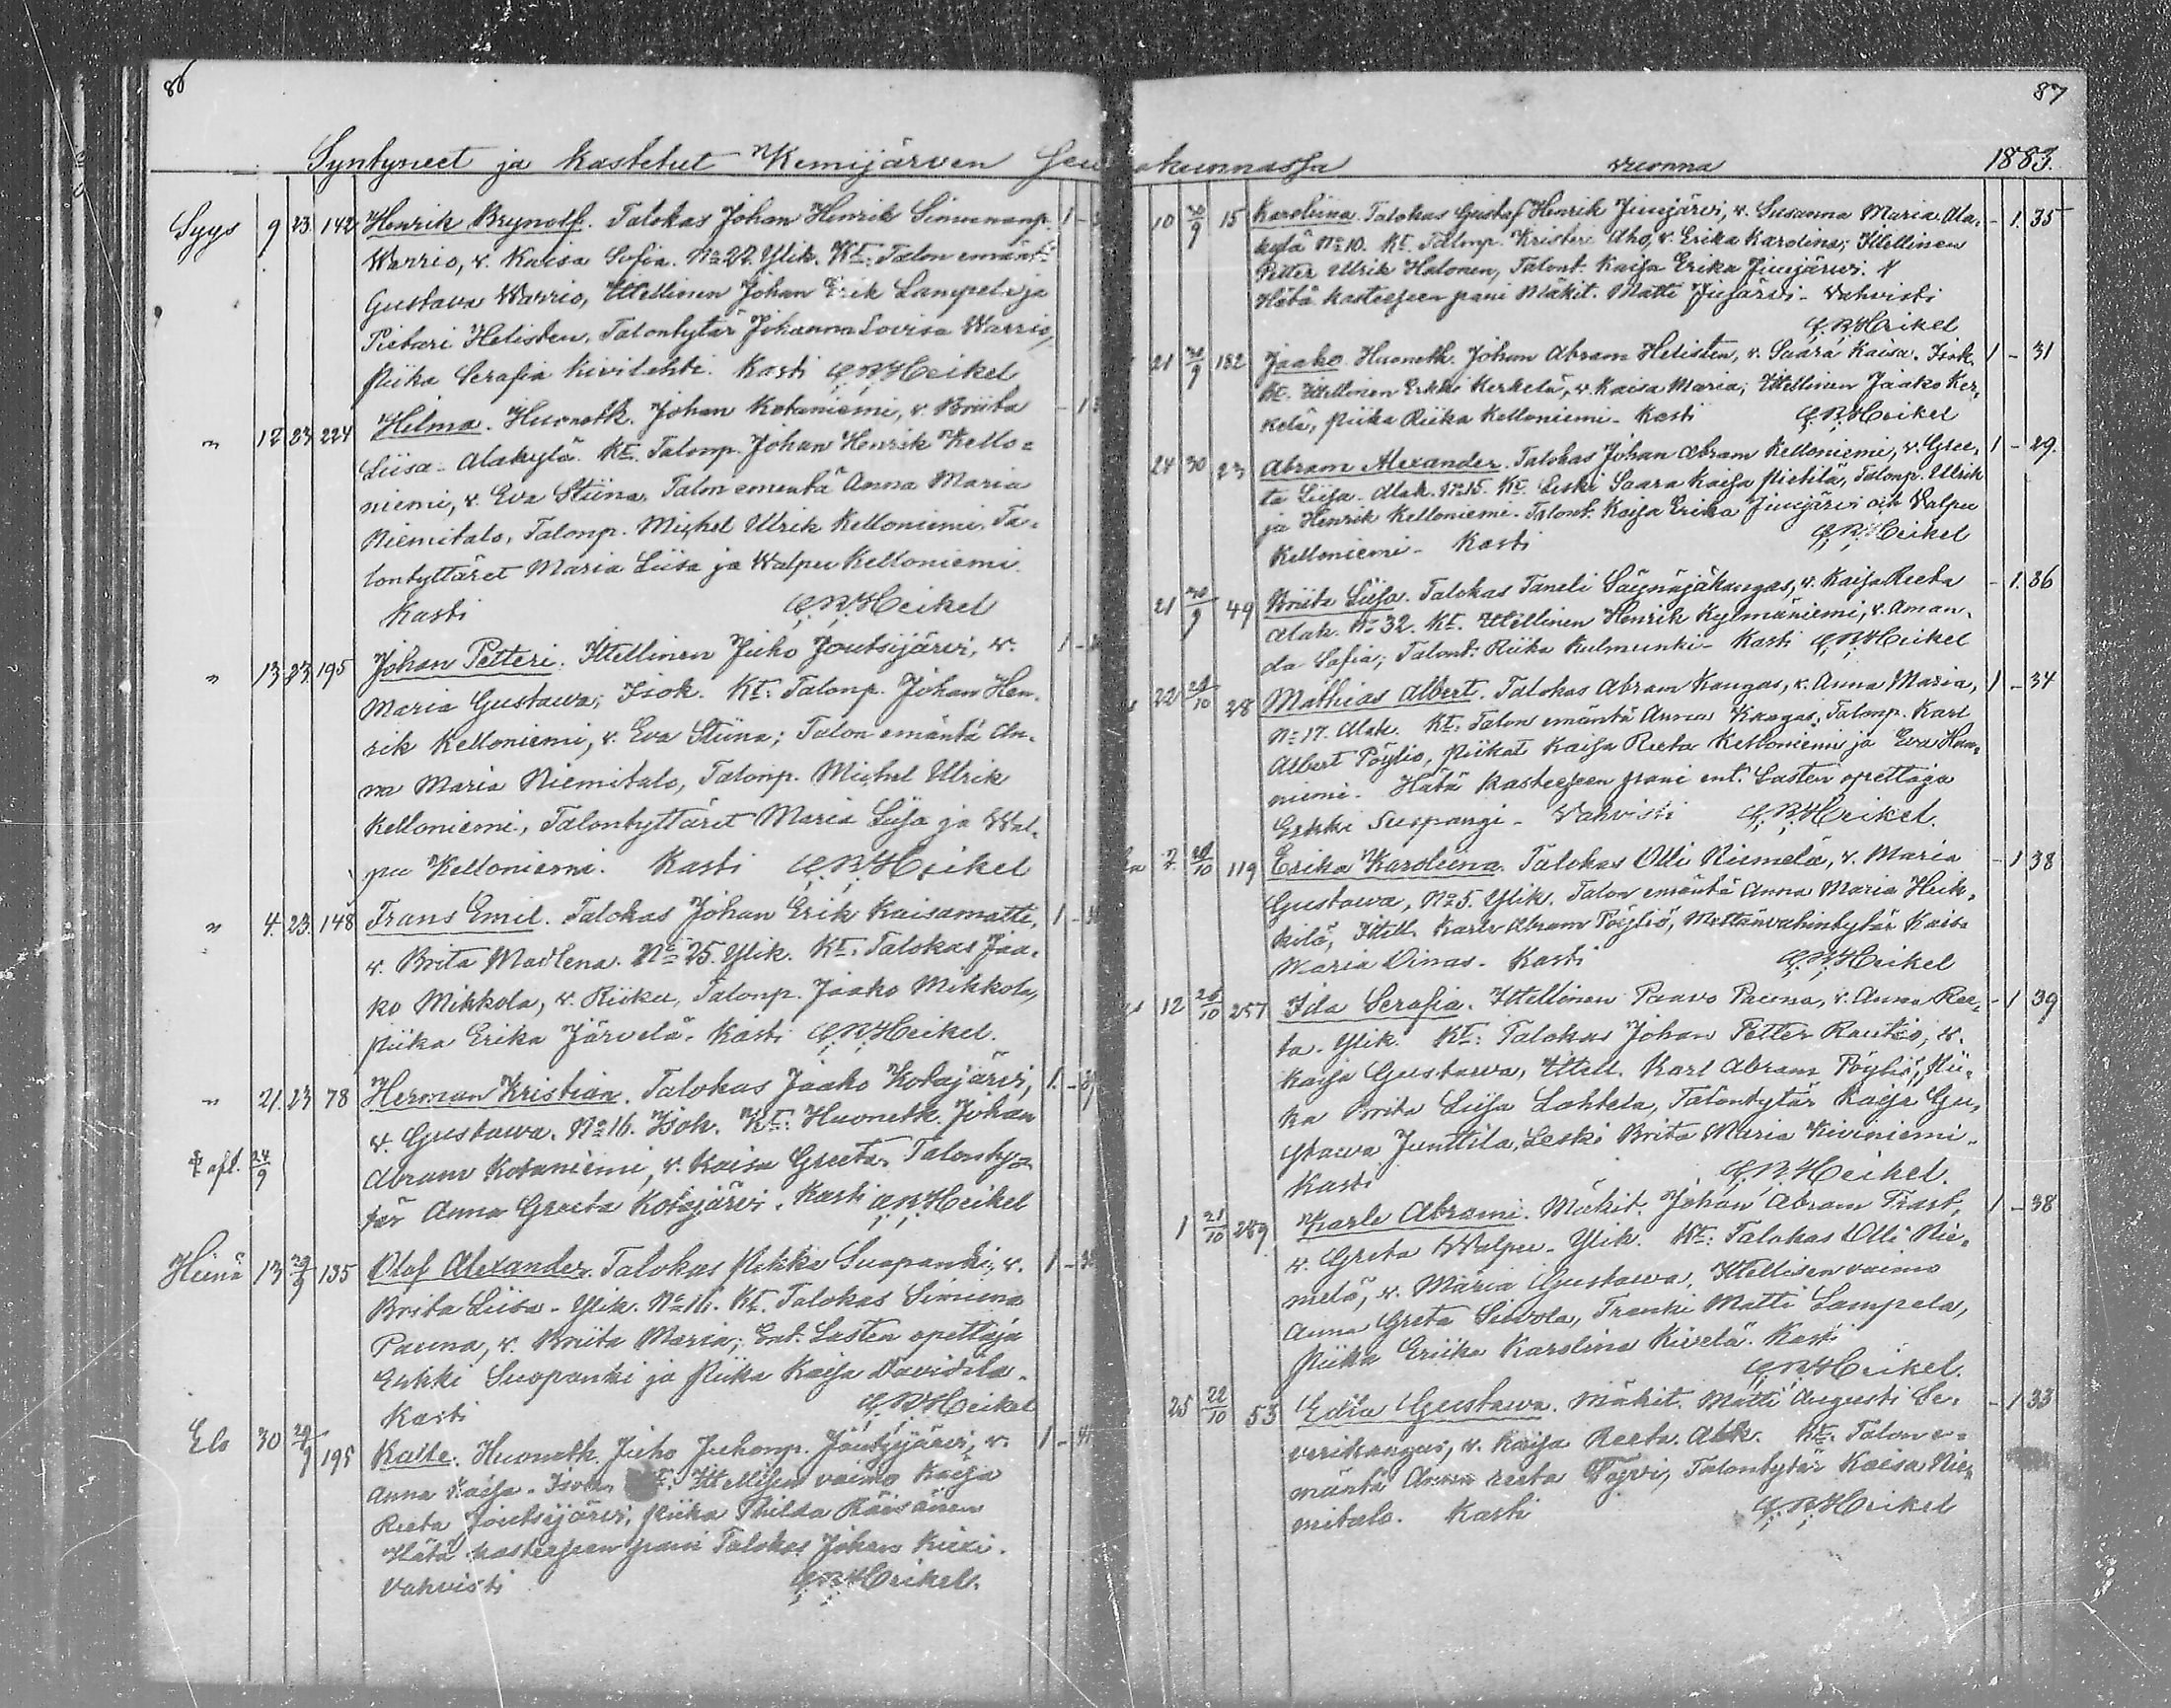 86
Syntyneet ja kastetut Kemijärven Seu
Syys 9 23 142 Henrik Brynolf. Talokas Johan Henrik Simunanp. 1 -
Warrio, v. Kaisa Sofia. No 22. Ylik. Kt: Talon emänt:
Gustava Warrio, Ittellinen Johan Erik Lampela ja
Pietari Helisten, Talontytär Johanna Lovisa Warrio,
Piika Serafia Kivilehti. Kasti Heikel
" 12 23 224 Helma. Huonetk. Johan Kotaniemi, v. Briita - 1
Liisa. Alakylä. Kt. Talonp. Johan Henrik Kello=
niemi, v. Eva Stiina, Talon emäntä Anna Maria
Niemitalo, Talonp. Michel Ulrik Kelloniemi, Ta-
lontyttäret Maria Liisa ja Walpu Kelloniemi.
Kasti Heikel
" 13 23 195 Johan Petteri. Ittellinen Juho Joutsijärvi, v. 1 -
Maria Gustawa; Isok. Kt: Talonp. Johan Hen-
rik Kelloniemi, v. Eva Stiina; Talon emäntä An-
na Maria Niemitalo, Talonp. Michel Ulrik
Kelloniemi, Talontyttäret Maria Liisa ja Wal-
pu Kelloniemi. Kasti Heikel
" 4. 23. 148 Frans Emil. Talokas Johan Erik Kaisamatti, 1 -
v. Brita Madlena. No 25. Ylik. Kt. Talokas Jaa-
ko Mikkola, v. Riika, Talonp. Jaako Mikkola,
Piika Erika Järvelä. Kasti Heikel.
" 21. 23 78 Herman Kristian. Talokas Jaako Kotajärvi, 1. -
v. Gustawa. No 16. Isok. Kt: Huonetk. Johan
afl. 24/9 Abram Kotaniemi, v. Kaisa Greeta, Talonty=
tär Anna Greeta Kotajärvi. Kasti Heikel
Heinä 13 29/9 135 Olof Alexander. Talokas Pekka Suopanki, v. 1 -
Brita Liisa. Ylik. No 16. Kt. Talokas Simuna
Pauna, v. Briita Maria; Ent. Lasten opettaja
Erkki Suopanki ja Piika Kaisa Davidila.
Kasti Heikel
Elo 30 29/9 195 Kalle. Huonetk. Juho Juhonp. Joutsijärvi, v. 1 -
Anna Kaisa. Isok. Kt. Ittellisen vaimo Kaisa
Reeta Joutsijärvi, Piika Hilda Räisänen
Hätä kasteeseen pani Talokas Johan
Vahvisti Heikel.
87
akunnassa vuonna 1883.
10 30/9 15 Karoliina. Talokas Gustaf Henrik Jiusjärvi, v. Susanna Maria Ala- - 1. 35
kylä No 10. Kt. Talonp. Kristeri Aho, v. Erika Karolina; Ittellinen
Petter Ulrik Halonen, Talont. Kaisa Erika Jiusjärvi.
Hätä kasteeseen pani Mäkit. Matti Jiusjärvi. Vahvisti
Heikel
21 30/9 182 Jaako. Huonetk. Johan Abram Helisten, v. Saara Kaisa. Isok. 1 - 31
Kt. Ittellinen Erkki Kerkelä, v. Kaisa Maria; Ittellinen Jaako Ker-
kelä, Piika Riika Kelloniemi. Kasti Heikel
24 30 23 Abram Alexander. Talokas Johan Abram Kelloniemi, v. Gree- 1 - 29.
ta Liisa. Alak. No 15. Kt. Leski Saara Kaisa Pietilä, Talonp. Ulrik
ja Henrik Kelloniemi. Talont. Kaisa Erika Jiusjärvi och Walpu
Kelloniemi. Kasti Heikel
21 30/9 49 Briita Liisa. Talokas Taneli Säynäjäkangas, v. Kaisa Reeta - 1. 36
Alak. No 32. Kt. Ittellinen Henrik Kylmäniemi, v. Aman-
da Sofia; Talont. Riika Kulmunki. Kasti Heikel
22 28 Mathias Albert. Talokas Abram Kangas, v. Anna Maria, 1 - 34
No 17. Alak. Kt. Talon emäntä Anna Kangas, Talonp. Karl
Albert Pöyliö, Piikat Kaisa Reeta Kelloniemi ja Eva
niemi. Hätä kasteeseen pani ent. Lasten opettaja
Erkki Suopangi. Vahvisti Heikel.
7 119 Erika Karoliina. Talokas Olli Niemelä, v. Maria - 1 38
Gustawa, No 5. Ylik. Talon emäntä Anna Maria Heik-
kilä, Ittell. Karl Abram Pöyliö, Mettänvahintytär Kaisa
Maria Dinas. Kasti Heikel
12 257 Iida Serafia. Ittellinen Paavo Pauna, v. Anna Ree- - 1 39
ta. Ylik. Kt: Talokas Johan Petter Rautio, v.
Kaisa Gustawa, Ittell. Karl Abram Pöyliö, Pii-
ka Brita Liisa Lahtela, Talontytär Kaisa Gu-
stawa Junttila, Leski Brita Maria Kiviniemi.
Kasti Heikel.
1 21/10 289 Karle Abrami. Mäkit. Johan Abram Trast, 1 - 38
v. Greta Walpu. Ylik. Kt: Talokas Olli Nie-
melä, v. Maria Gustawa, Ittellisen vaimo
Anna Greta Siivola, Trenki Matti Lampela,
Piika Eriika Karolina Kivelä. Kasti
Heikel.
25 22/10 53 Edla Gustawa. Mäkit. Matti Augusti Se- - 1 33
verikangas, v. Kaisa Reeta. Alk. Kt. Talon e-
mäntä Anna Reeta Töyri, Talontytär Kaisa Nie-
mitalo. Kasti Heikel